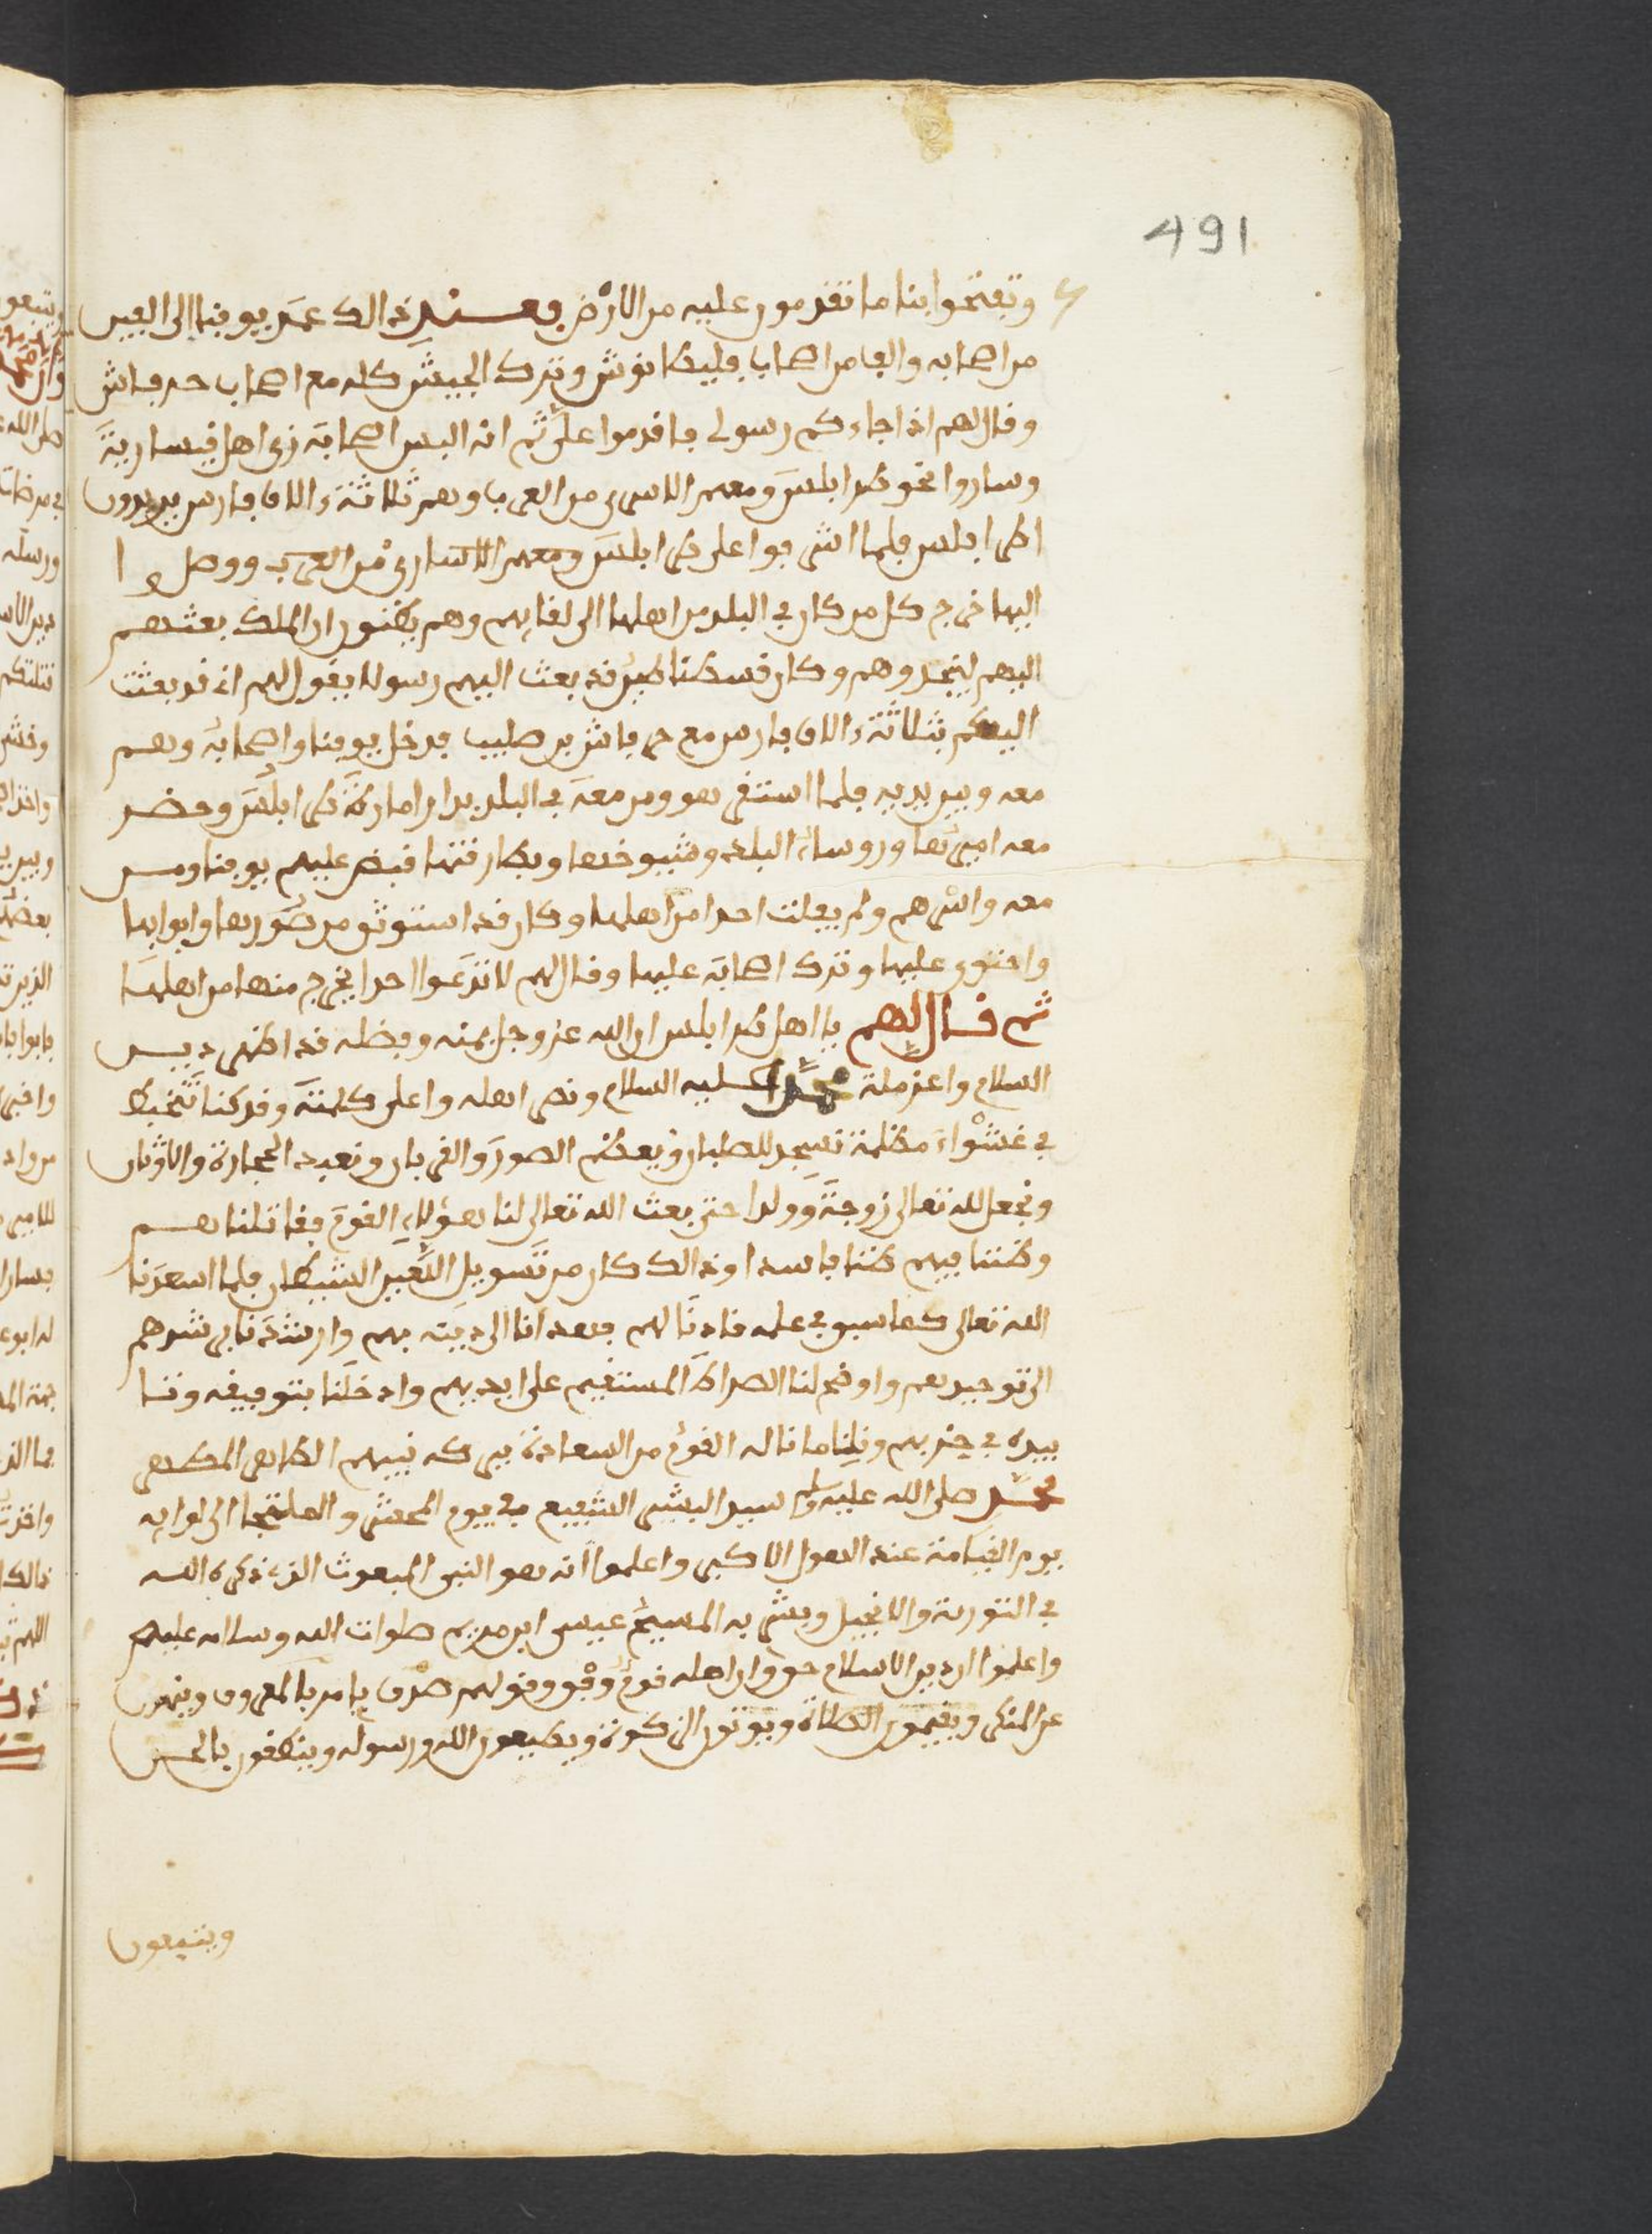 491
وتفتحوا بنا ما تقدمون عليه من الأرض فعند ذالك عمد يوقنا الى الفين
من اصحابه والف من اصحاب فليطانوش وترك الجيش كله مع اصحاب جرفاش
وقال لهم اذا جاءكم رسولى فاقدموا على ثم انه البس اصحابه زى اهل قيسارية
وساروا نحو طرابلس ومعهم الاسرى من العرب وهم ثلاثة ءالاف فارس يريدون
اطرابلس فلما اشرفوا على طرابلس ومعهم الاسارى من العرب ووصلوا
اليها خرج كل من كان في البلد من اهلها الى لقايهم وهم يظنون ان الملك بعثهم
اليهم لينجدوهم وكان قسطنطين قد بعث اليهم رسولا يقول لهم انى قد بعثت
اليكم بثلاثة ءالاف فارس مع جرفاش بن صليب فدخل يوقنا واصحابه وهم
معه وبين يديه فلما استقر هو ومن معه في البلد بدار امارة طرابلس وحضر
معه اميرها وروساء البلد وشيوخها وبطارقتها قبض عليهم يوقنا ومن
معه واسرهم ولم يفلت احدا من اهلها وكان قد استوثق من سورها وابوابها
واحتوى عليها وترك اصحابه عليها وقال لهم لا تدعوا احدا يخرج منها من اهلها
ثم قال لهم يا اهل طرابلس ان الله عز وجل بمنه وفضله قد اظهر دين
السلام واعز ملة محمد عليه السلام ونصر اهله واعلى كلمته وقد كنا نتخبط
في غشواء مظلمة نسجد للصلبان ونعظم الصور والقربان ونعبد الحجارة والاوثان
ونجعل لله تعالى زوجة وولدا حتى بعث الله تعالى لنا هؤلاء القوم فقاتلناهم
وظننا فيهم ظنا فاسدا وذالك كان من تسويل اللعين الشيطان فلما اسعدنا
الله تعالى كما سبق في علمه قادنا لهم فهدانا الى دينه بهم وارشدنا بى شدهم
الى توحيدهم واوضح لنا الصراط المستقيم على ايديهم وادخلنا بتوفيقه وتا
ييده في حزبهم ونلنا ما ناله القوم من السعادة ببركة نبيهم الطاهر المطهر
محمد صلى الله عليه وسلم سيد البشر الشفيع في يوم المحشر والملتجا الى لوايه
يوم القيامة عند الهول الاكبر واعلموا انه هو النبى المبعوث الذى ذكره الله
في التورية والانجيل وبشر به المسيح عيسى ابن مريم صلوات الله وسلامه عليهم
واعلموا ان دين الاسلام حق وان اهله قوم وقولهم صدق يامر بالمعروف وينهون
عن المنكر ويقيمون الصلاة ويوتون الزكوة ويطيعون الله ورسوله وينطقون بالحق
ويتبعون